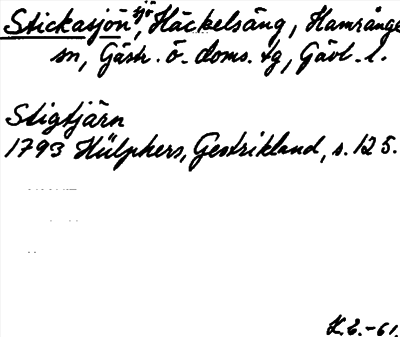 Stickasjön, sjö Häckelsäng, Hamrånge
sn, Gästr. ö. doms. tg, Gävl. l.
Stigtjärn
1793 Hülphers, Gestrikland, s. 125.
K.E.-61.